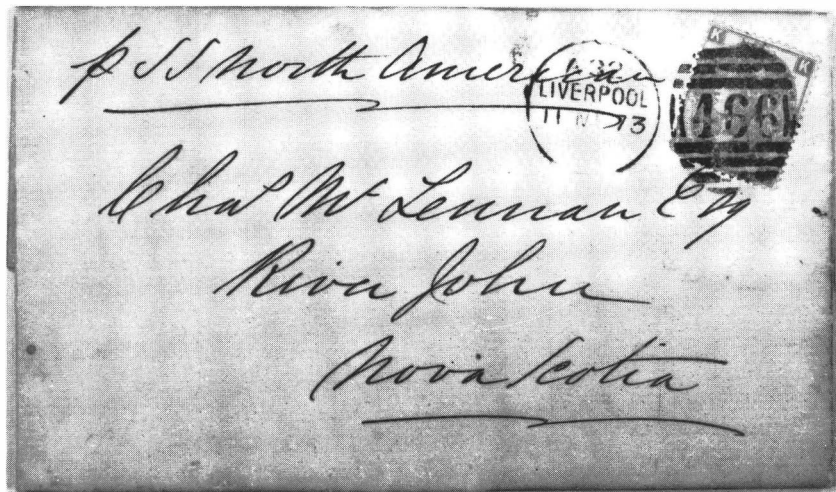 p SS North American
LIVERPOOL
466
K
K
Chas Mc Lennan Esq
River John
Nova Scotia